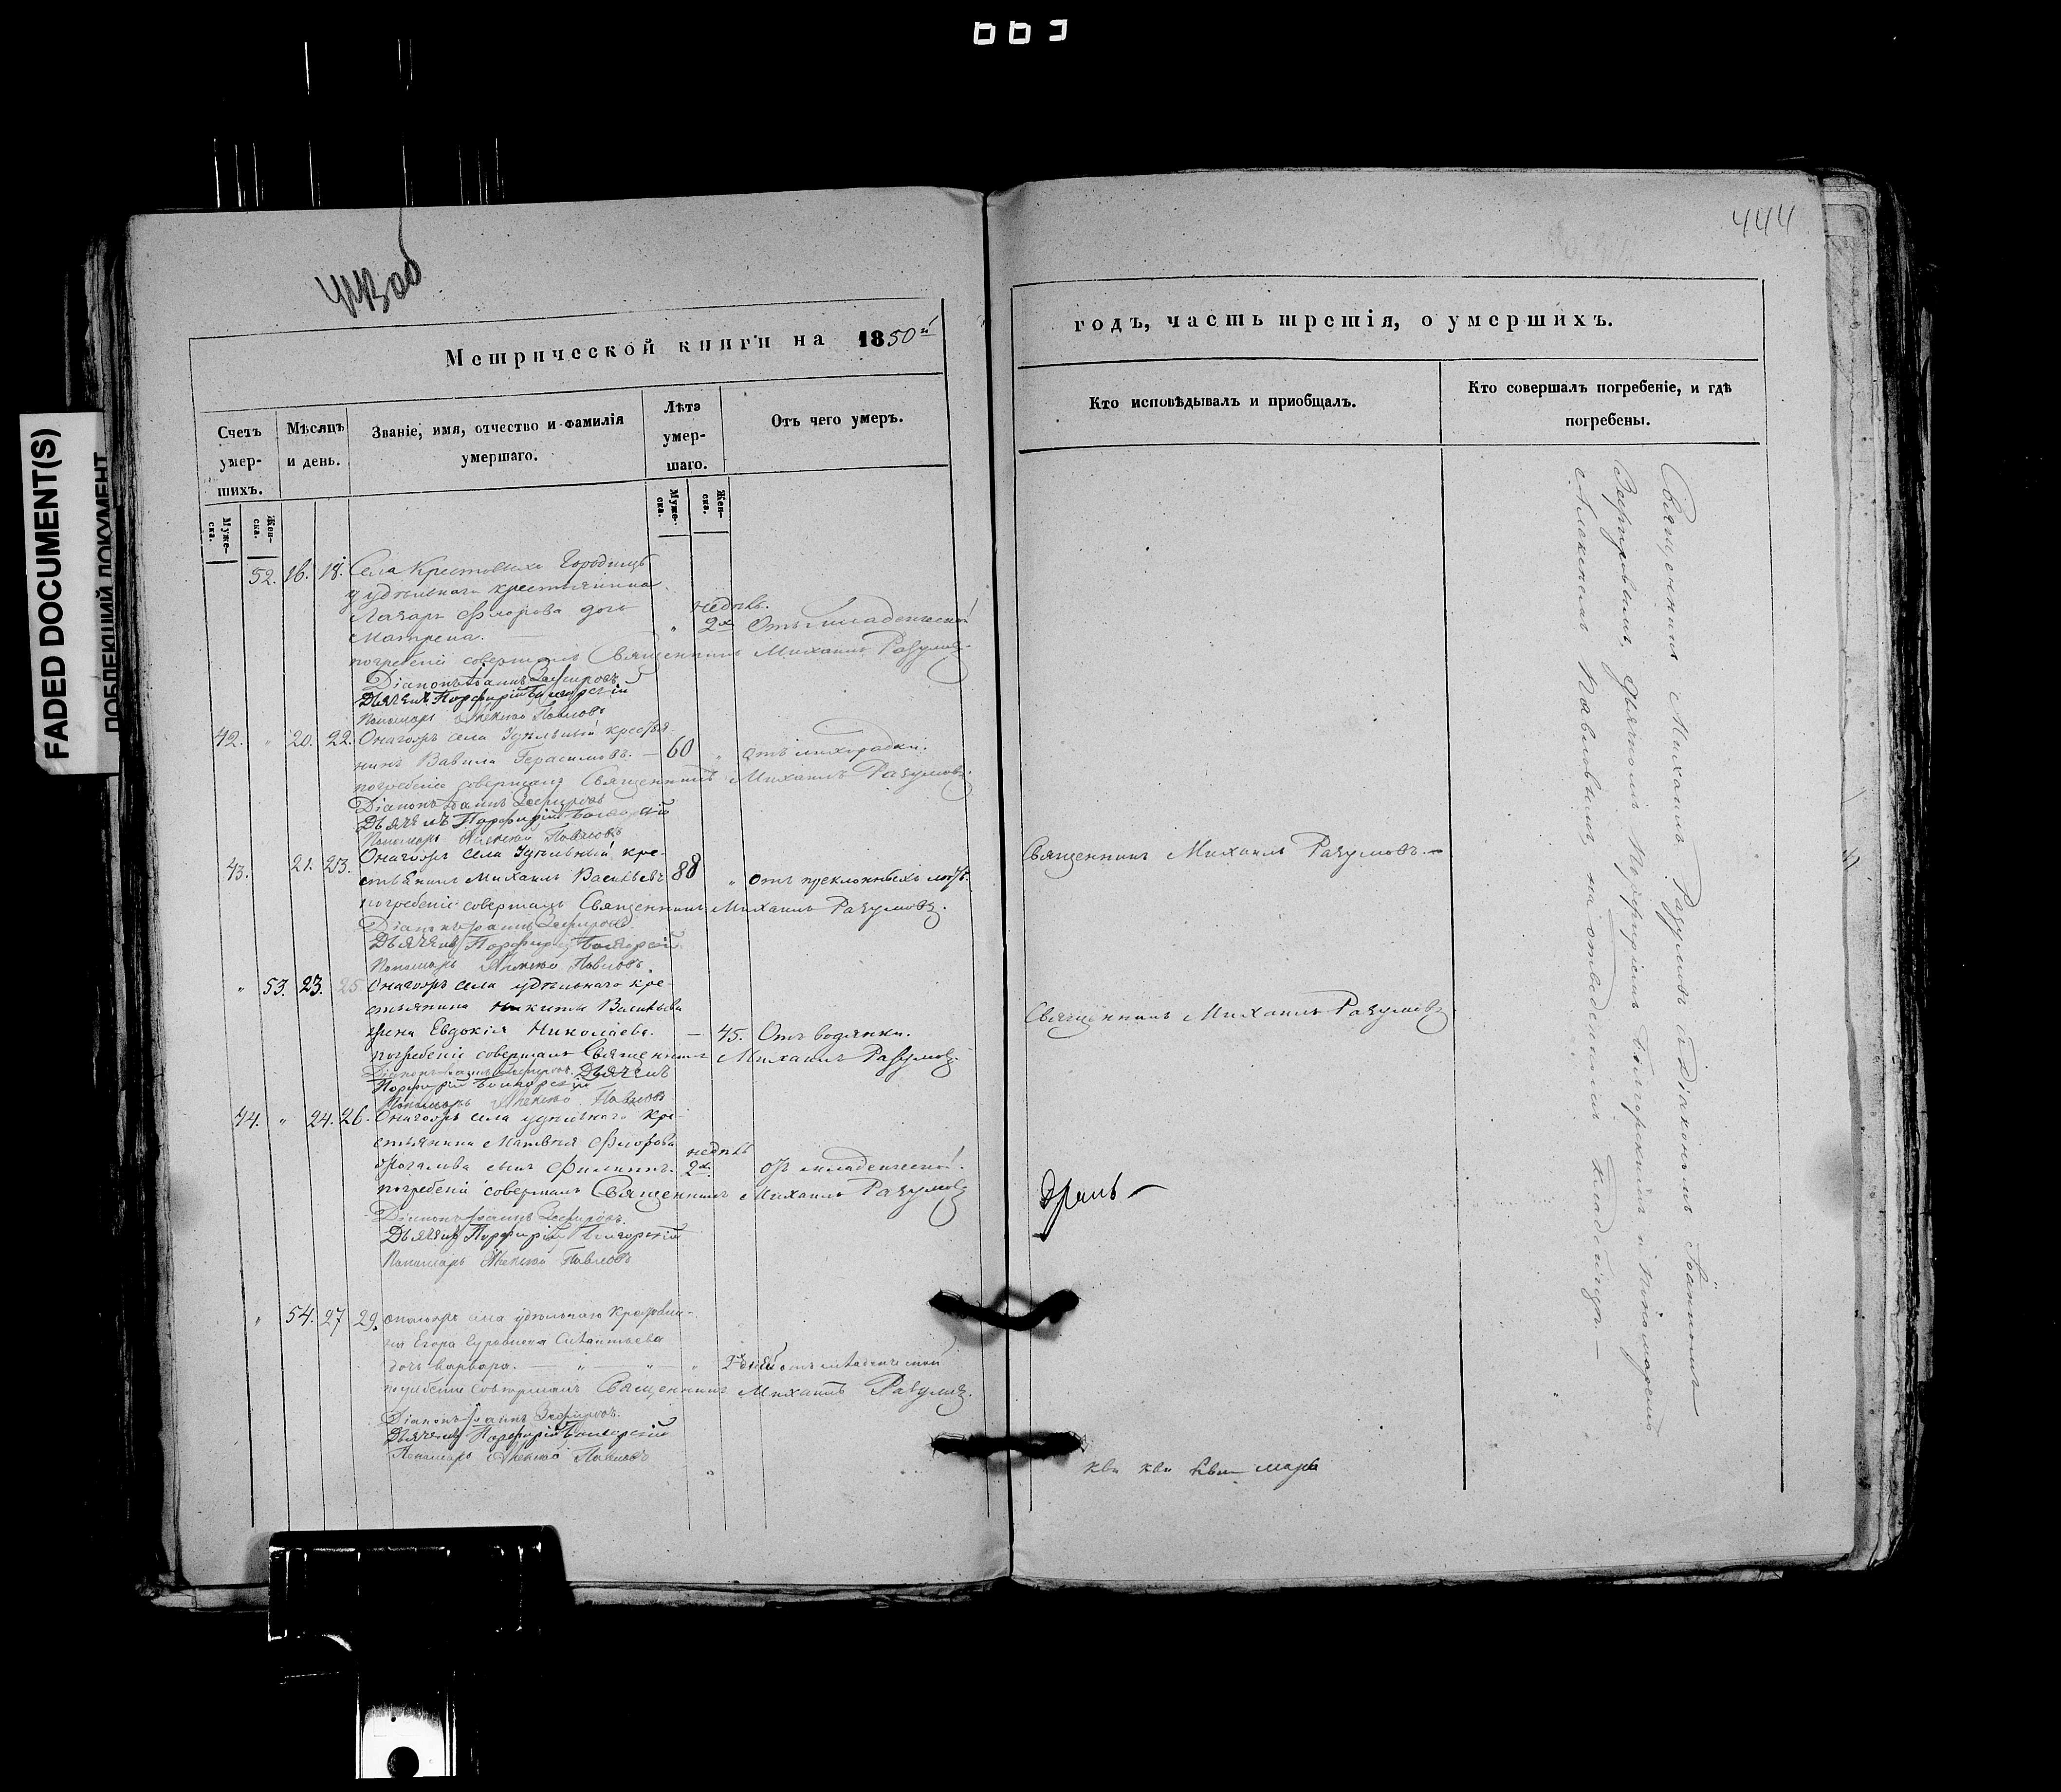 FADED DOCUMENT(S)
444
Метрической книги на 1850й
годъ, часть третія, о умершихъ.
Счетъ умер-шихъ.
Мѣсяцъ и день.
Званіе, имя, отчество и фамилія умершаго.
Лѣта умер-шаго.
Отъ чего умеръ.
Кто исповѣдывалъ и приобщалъ.
Кто совершалъ погребеніе, и гдѣ погребены.
Муже-ска.
Жен-ска.
Муже-ска.
Жен-ска.
52. 16. 18. Села Крестовыхъ Городищъ
удѣльнаго крестьянина
Лазаря Флорова дочь
недѣль.
Матрена. 2х Отъ младенческой
погребеніе совершалъ Священникъ Михаилъ Разумовъ.
Діаконъ Іоаннъ Зефировъ
Дьячекъ Порфирій Болгорскій
Пономарь Алексѣй Павловъ
42. 20. 22. Онагожъ села Удѣльный крестья
нинъ Вавила Герасимовъ. 60 Отъ лихорадки.
погребеніе совершалъ Священникъ Михаилъ Разумовъ
Діаконъ Іоаннъ Зефировъ
Дьячекъ Порфирій Болгорскій
Пономарь Алексѣй Павловъ
43. 21. 23. Онагожъ села Удѣльный кре-
стьянинъ Михаилъ Васильевъ 88 Отъ преклонныхъ лѣтъ.
погребеніе совершалъ Священникъ Михаилъ Разумовъ.
Діаконъ Іоаннъ Зефировъ
Дьячекъ Порфирій Болгорскій
Пономарь Алексѣй Павловъ.
53. 23. 25 Онагожъ села удѣльнаго кре-
стьянина Никиты Васильева
жена Евдокія Николаева. — 45. Отъ водянки.
погребеніе совершалъ Священникъ Михаилъ Разумовъ.
Діаконъ Іоаннъ Зефировъ. Дьячекъ
Порфирій Болгорскій
Пономарь Алексѣй Павловъ
44. 24. 26. Онагожъ села удѣльнаго кре-
стьянина Матвѣя Флорова
недѣль
сынъ Филиппъ. 2х отъ младенческой.
погребеніе совершалъ Священникъ Михаилъ Разумовъ
Діаконъ Іоаннъ Зефировъ.
Дьячекъ Порфирій Болгорскій
Пономарь Алексѣй Павловъ
54. 27 29. онагожъ села удѣльнаго крестьяни-
на Егора
дочь Варвара. дней отъ младенческой
погребеніе совершалъ Священникъ Михаилъ Разумовъ.
Діаконъ Іоаннъ Зефировъ.
Дьячекъ Порфирій Болгорскій
Пономарь Алексѣй Павловъ
Священникъ Михаилъ Разумовъ.—
Священникъ Михаилъ Разумовъ
Священникъ Михаилъ Разумовъ съ Діакономъ Іоанномъ
Зефировымъ, дьячкомъ Порфиріемъ Болгорскимъ и пономаремъ
Алексѣемъ Павловымъ, на отведенномъ кладбищѣ.—